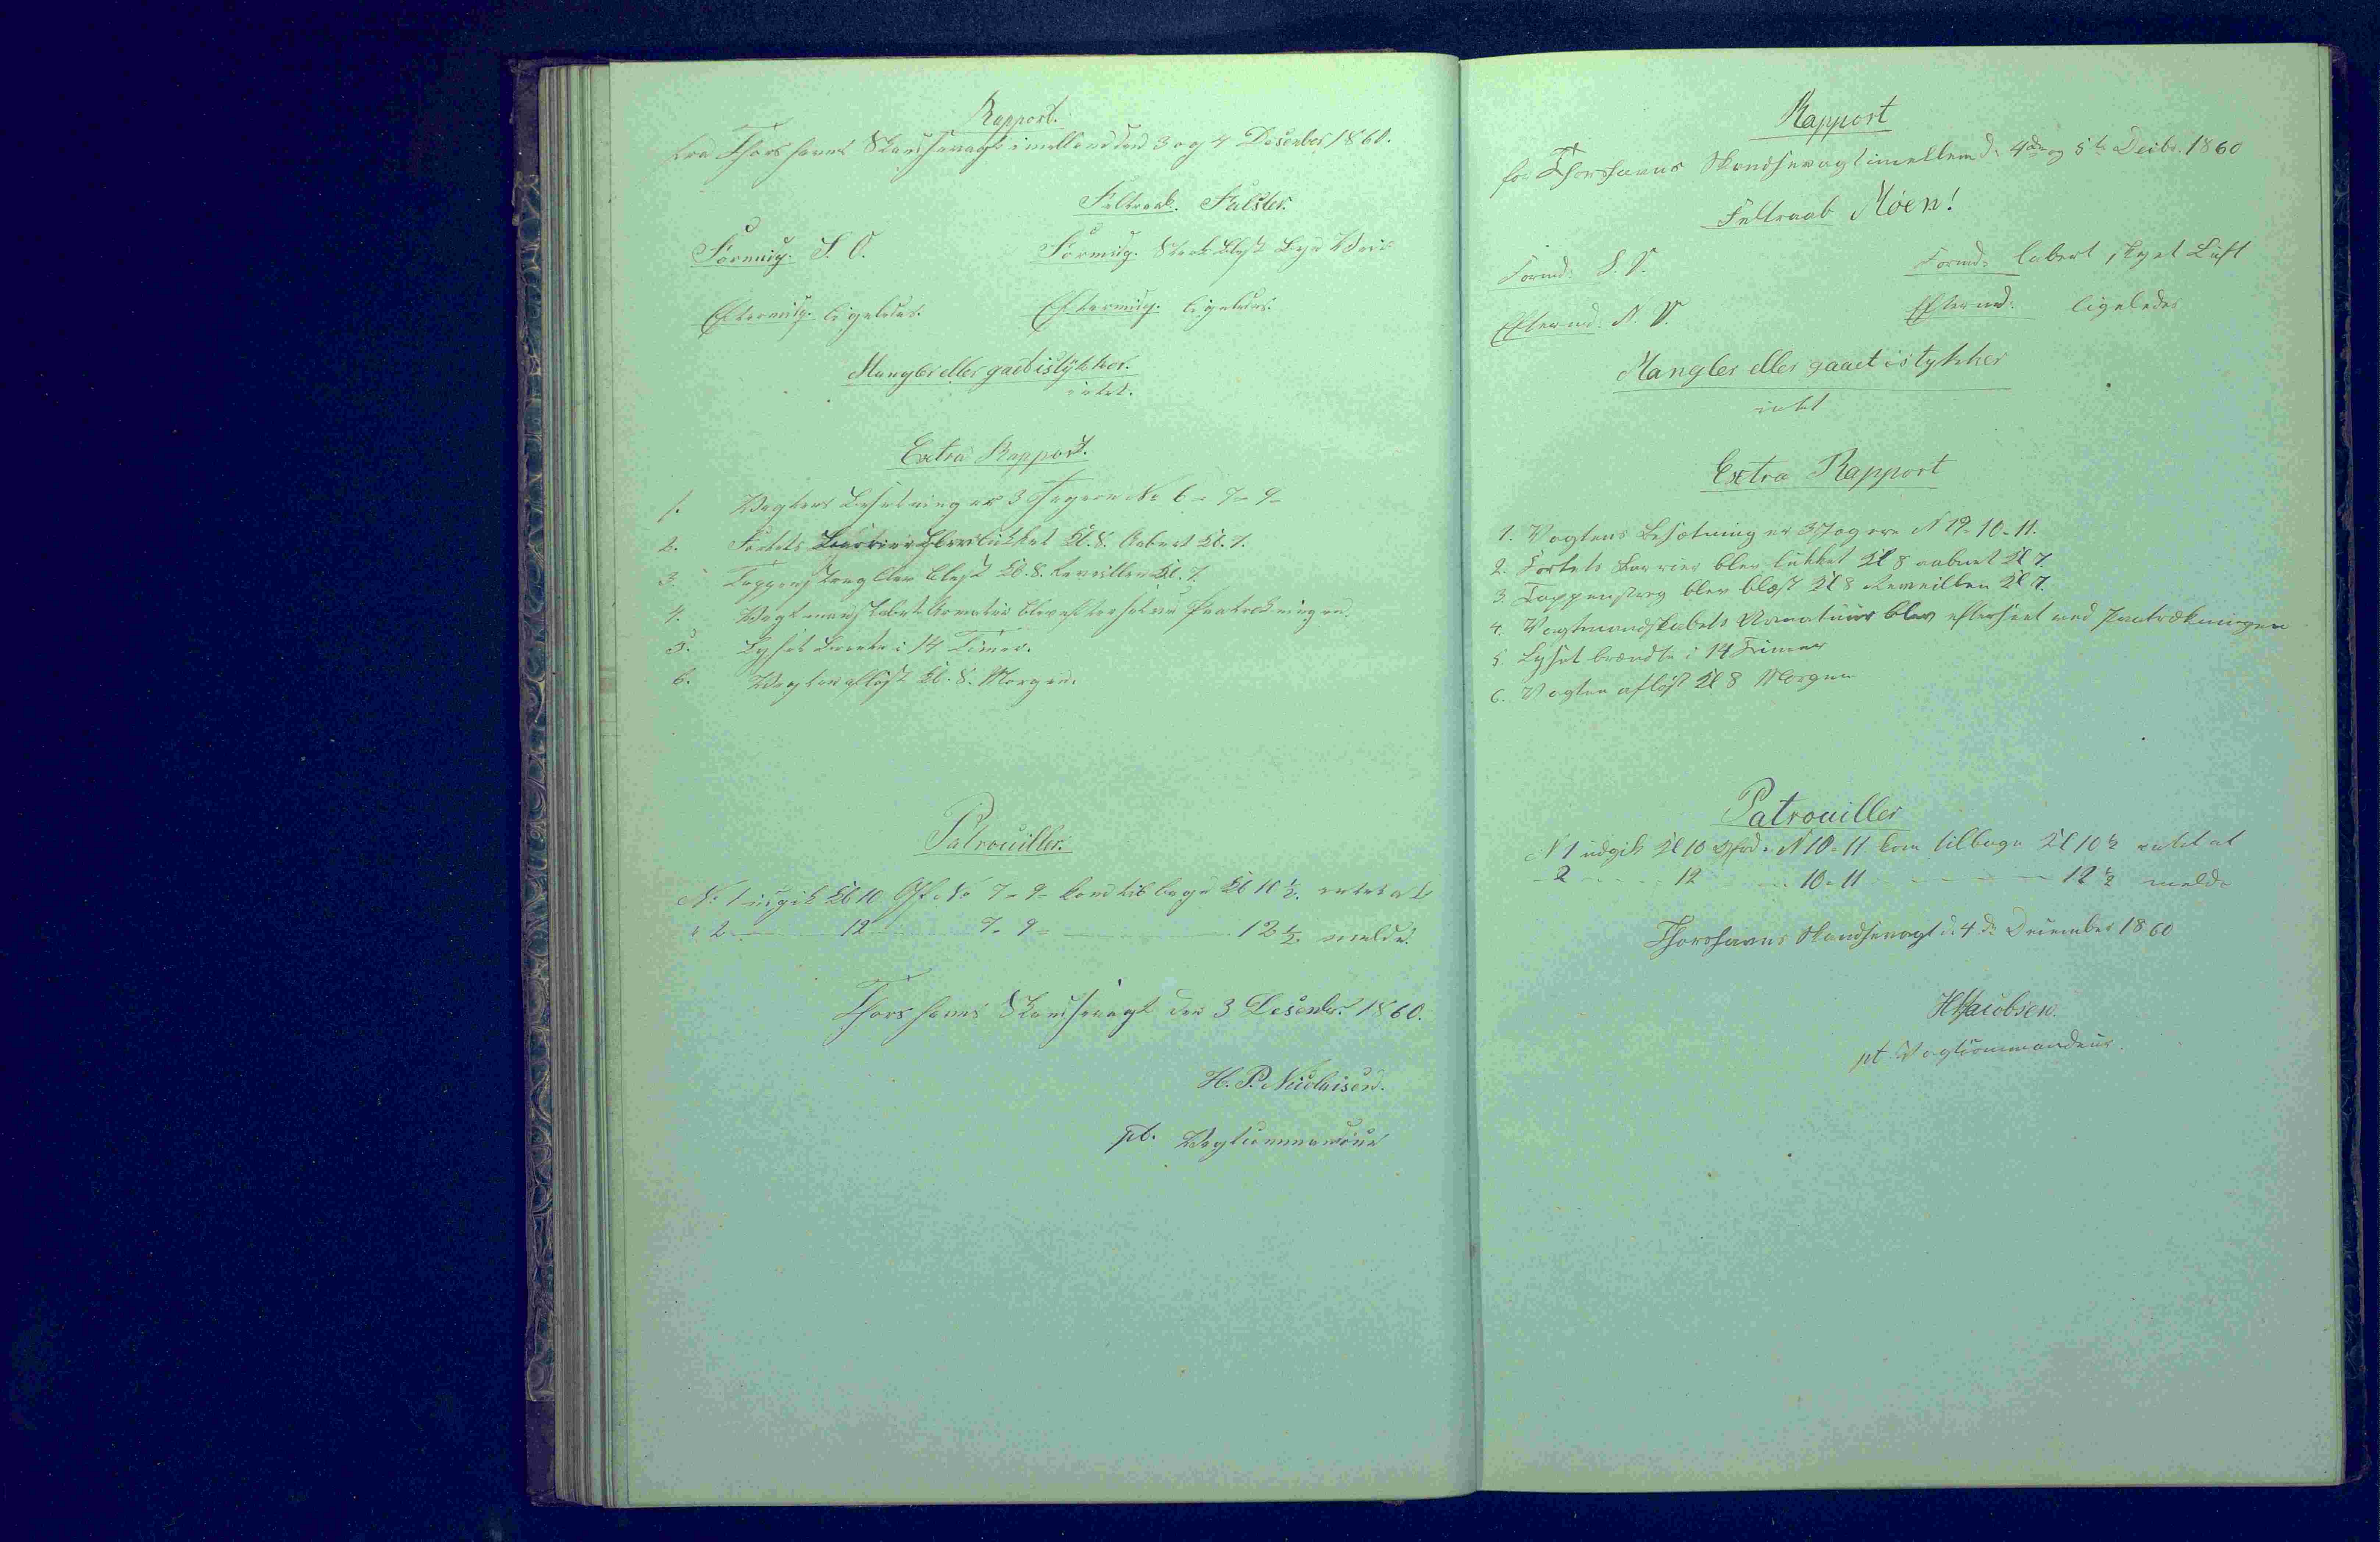 Rapport.
Fra Thorshavns Skandsevagt imellem den 3 og 4 Desember 1860.
Feltraab. Falster.
Formidg. S. O.
Formidg. Stærk Blæst Bya Veir
Eftermidg. ligeledes.
Eftermidg. ligeledes.
Mangler eller gaaet istykker.
intet.
Extra Rapport.
1. Vagtens Besætning er 3 Jægere No 6 - 7 - 9 -
2. Fortets Barrier blev lukket Kl. 8. Aabnet Kl. 7.
3. Tappenstreg blev blæst Kl. 8. Reveillen Kl. 7.
4. Vagtmandskabets Armatur blev efterset ved Paatrækningen.
5. Lyset brænte i 14 Timer.
6. Vagten afløst Kl. 8. Morgen.
Patrouiller.
No 1 udgik Kl 10 Gf. No 7 - 9 - kom tilbage Kl 10 1/2. intet at
" 2 12 7 - 9 - 12 1/2. melde.
Thorshavns Skandsevagt den 3 Desembr. 1860.
H. P. Nicolaisen.
pt. Vagtcommandeur
Rapport
for Thorshavns Skandsevagt imellem d. 4de og 5te Decbr. 1860
Feltraab Møen!
Formd. S. V.
Formd. labert skyet Luft
Eftermd. N. V.
Eftermd. ligeledes
Mangler eller gaaet istykker
intet
Extra Rapport
1. Vagtens Besætning er 3 Jægere N 19 - 10 - 11.
2. Fortets Barrier blev lukket Kl 8 aabnet Kl 7.
3. Tappenstreg blev blæst Kl 8 Reveillen Kl 7.
4. Vagtmandskabets Armatuur blev efterseet ved Paatrækningen
5. Lyset brændte i 14 Timer
6. Vagten afløst Kl 8 Morgen
Patrouiller
N 1 udgik Kl 10 N 10 - 11 kom tilbage Kl 10 1/2 intet at
- 2 12 10 - 11 12 1/2 melde
Thorshavns Skandsevagt d. 4de December 1860
Jacobsen.
pt. Vagtcommandeur.